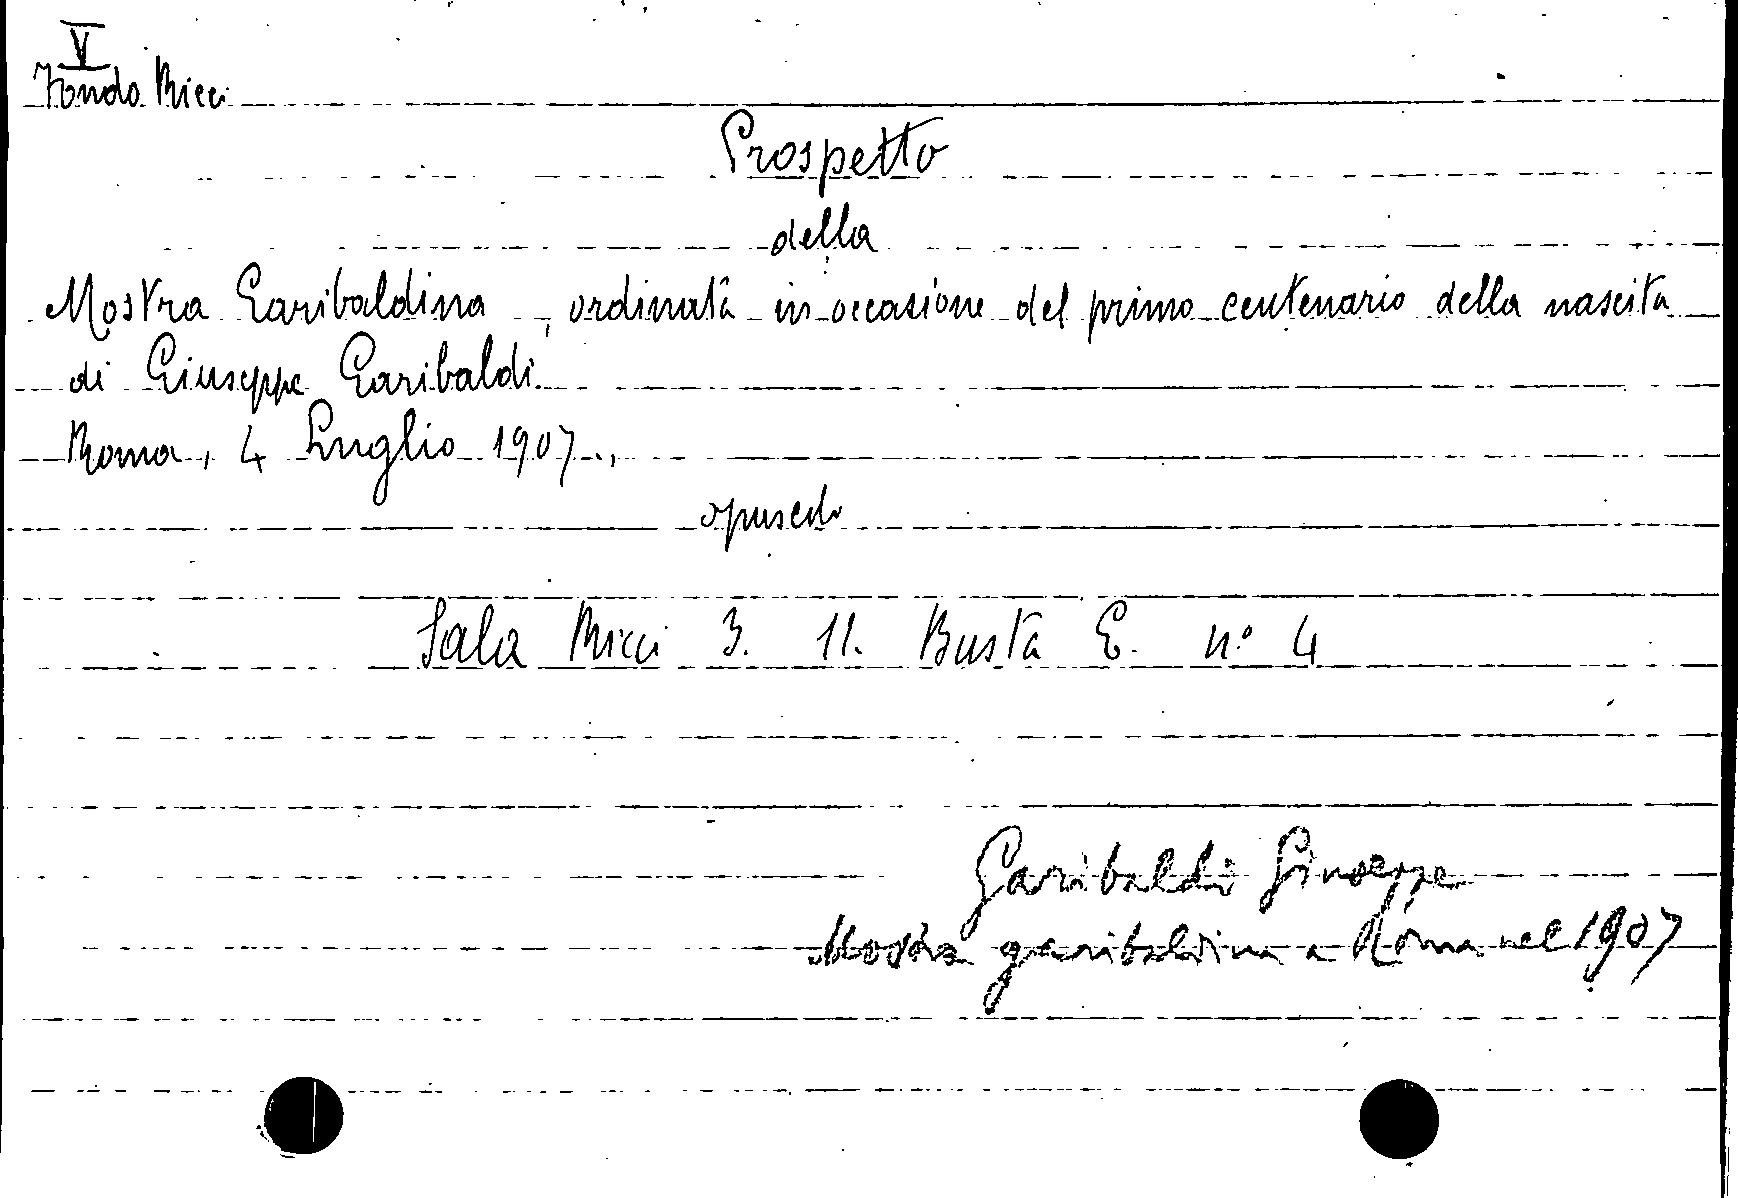 V
Fondo Ricci
Prospetto
della
Mostra Garibaldina, ordinata in occasione del primo centenario della nascita
di Giuseppe Garibaldi.
Roma, 4 Luglio 1907.,
opuscolo
Sala Ricci 3. 11. Busta E. n° 4
Garibaldi Giuseppe
Mostra garibaldina a Roma nel 1907